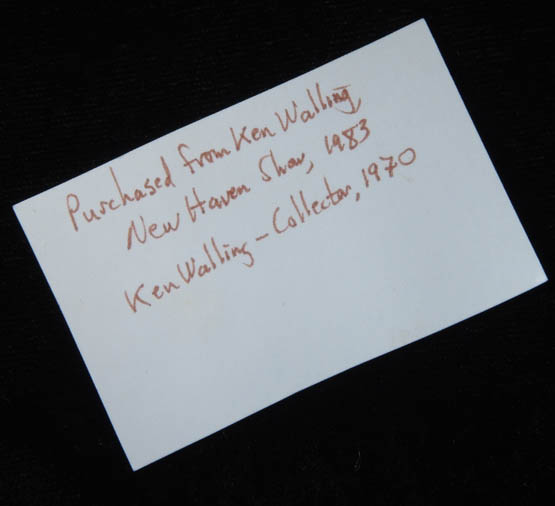 Purchased from Ken Walling,
New Haven Show, 1983
Ken Walling - Collector, 1970